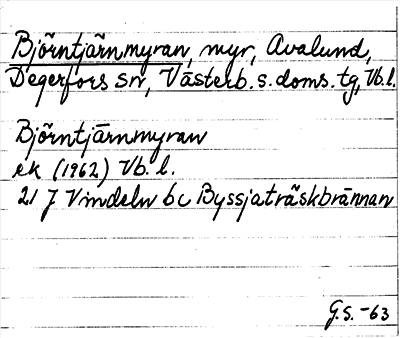 Björntjärnmyran, myr, Avalund,
Degerfors sn, Västerb. s. doms. tg, Vb. l.
Björntjärnmyran
ek (1962) Vb. l.
21 J Vindeln bc Byssjaträskbrännan
G.S. -63